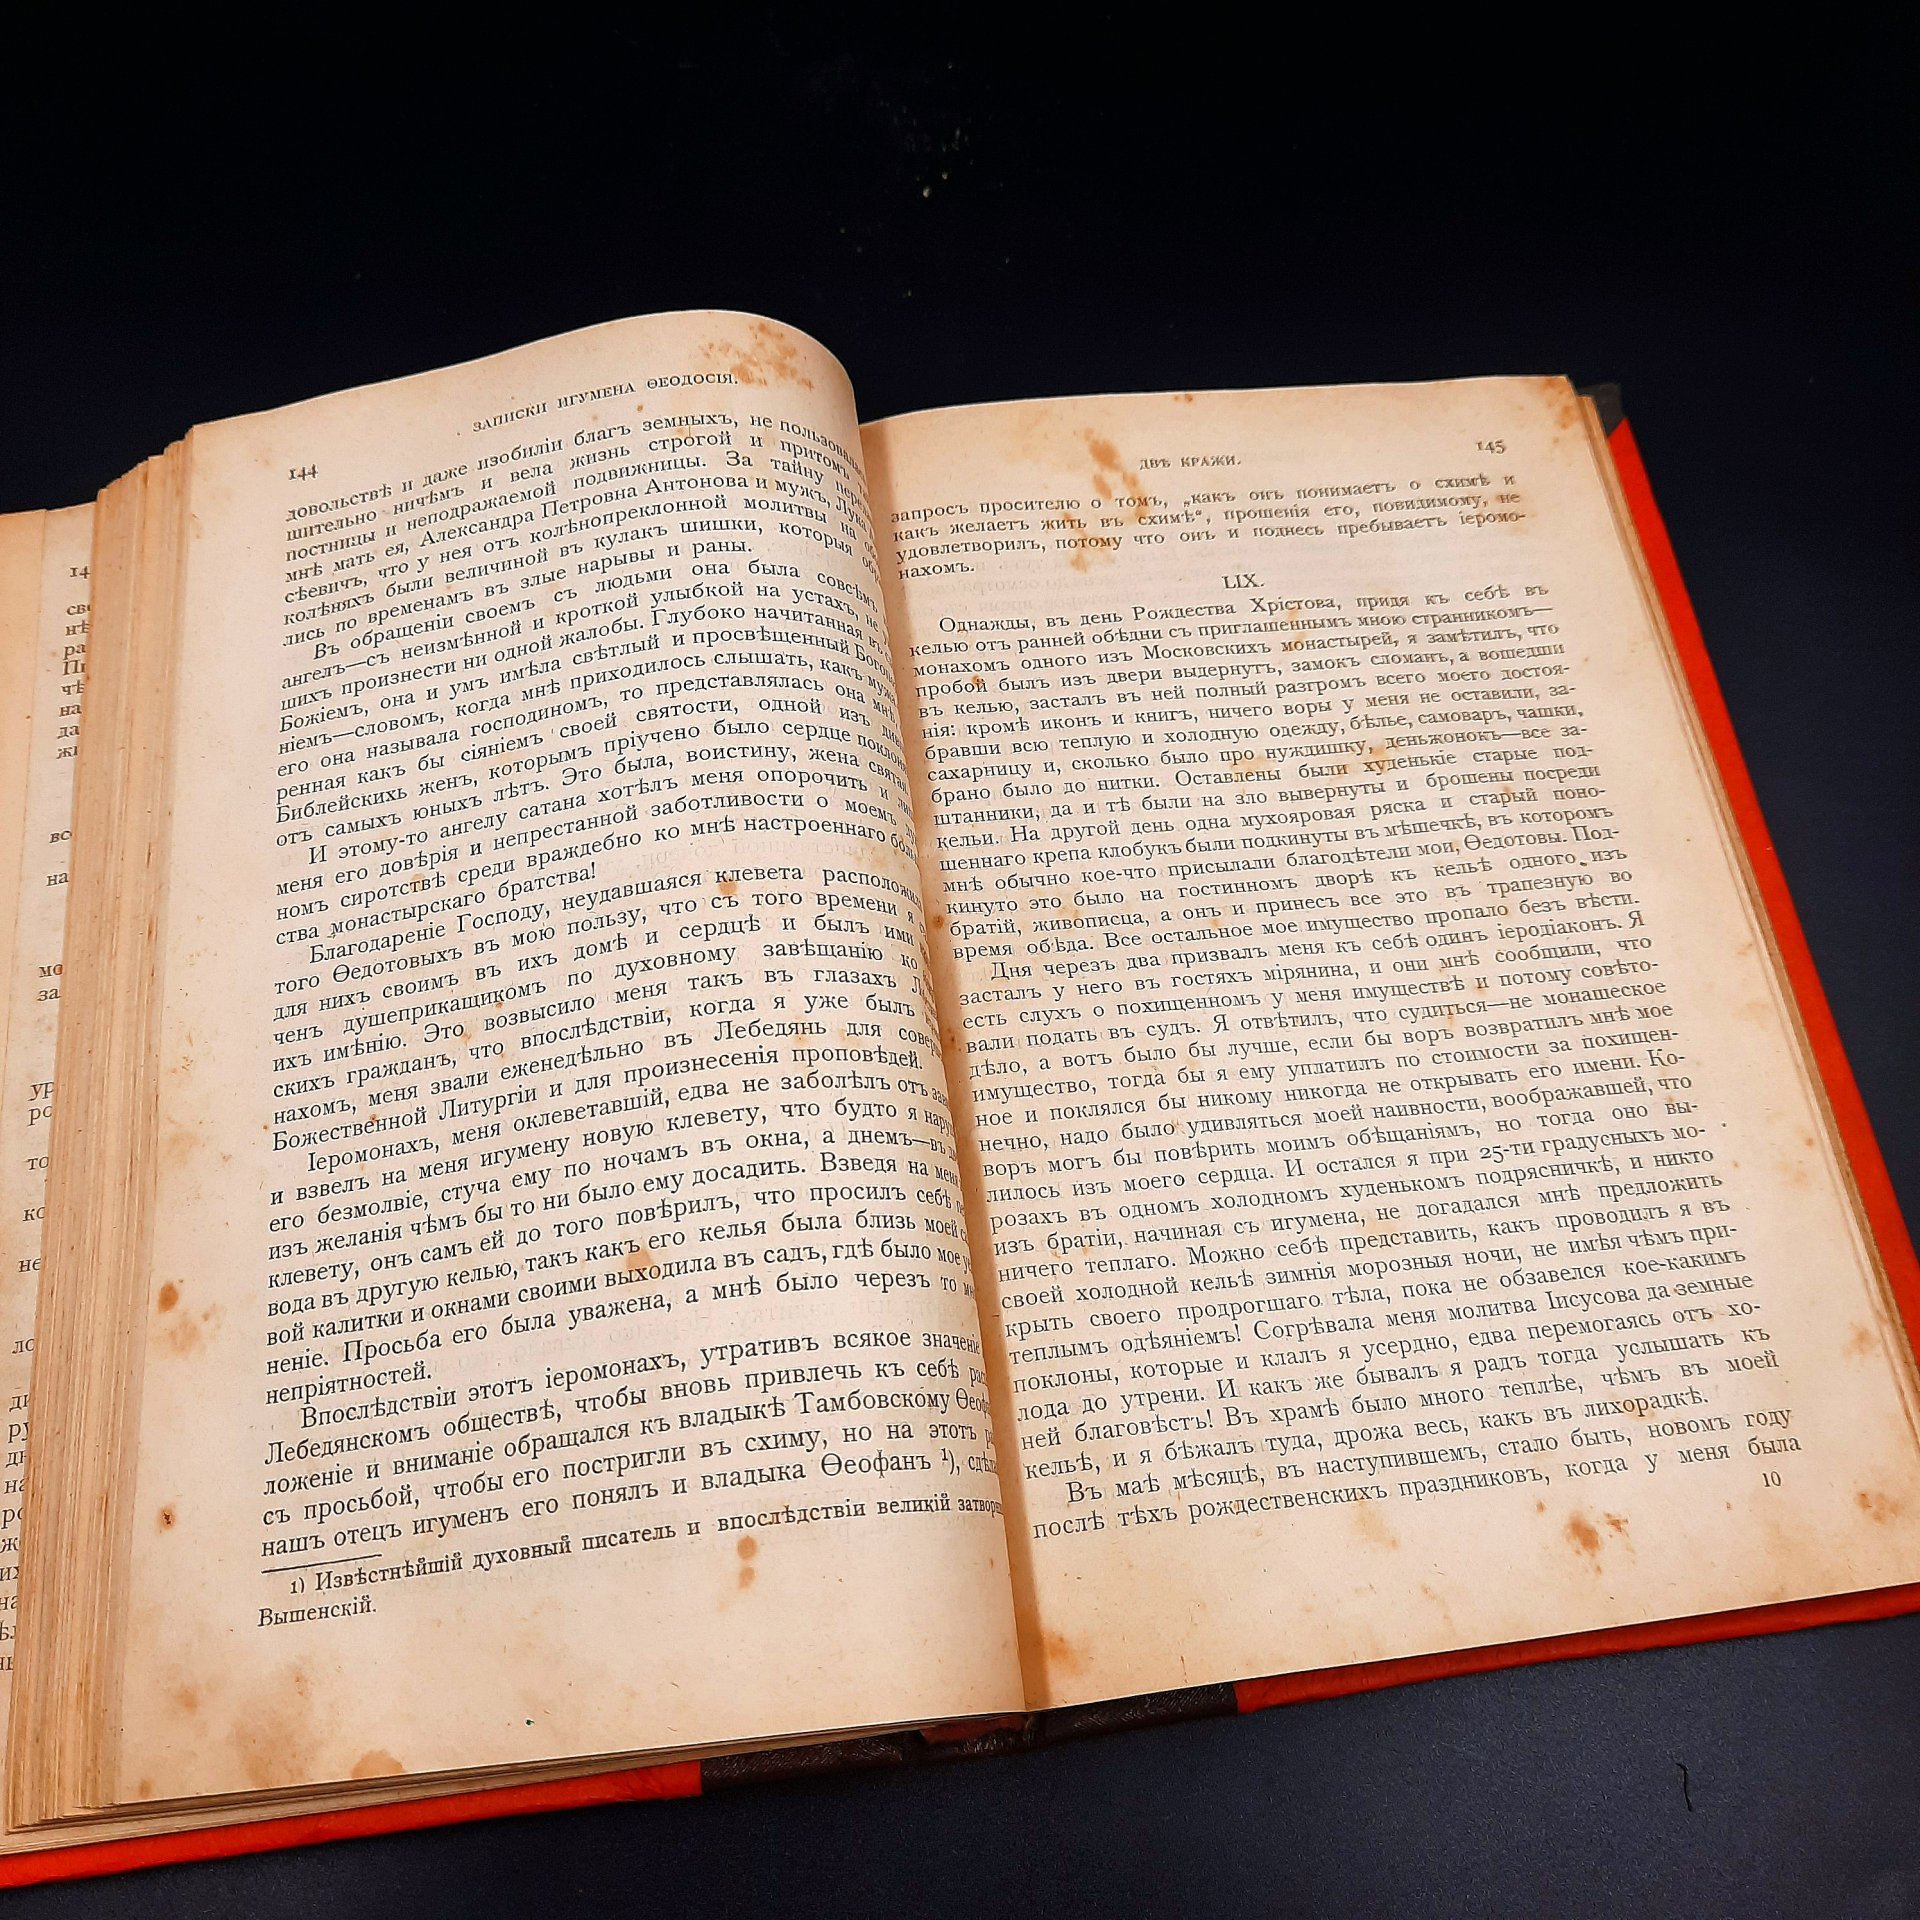 144
ЗАПИСКИ ИГУМЕНА ѲЕОДОСІЯ.
довольствѣ и даже изобиліи благъ земныхъ, не
шительно ничѣмъ и вела жизнь строгой и притомъ
постницы и неподражаемой подвижницы. За тайну
мнѣ мать ея, Александра Петровна Антонова и мужъ, Лука
сѣевичъ, что у нея отъ колѣнопреклонной молитвы на
колѣняхъ были величиной въ кулакъ шишки, которыя
лись по временамъ въ злые нарывы и раны.
Въ обращеніи своемъ съ людьми она была совсѣмъ
ангелъ—съ неизмѣнной и кроткой улыбкой на устахъ, не
шихъ произнести ни одной жалобы. Глубоко начитанная въ
Божіемъ, она и умъ имѣла свѣтлый и просвѣщенный
ніемъ—словомъ, когда мнѣ приходилось слышать, какъ мужа
его она называла господиномъ, то представлялась она мнѣ,
ренная какъ бы сіяніемъ своей святости, одной изъ
Библейскихь женъ, которымъ пріучено было сердце
отъ самыхъ юныхъ лѣтъ. Это была, воистину, жена святая
И этому-то ангелу сатана хотѣлъ меня опорочить и
меня его довѣрія и непрестанной заботливости о моемъ
номъ сиротствѣ среди враждебно ко мнѣ настроеннаго
ства монастырскаго братства!
Благодареніе Господу, неудавшаяся клевета
того Ѳедотовыхъ въ мою пользу, что съ того времени я
для нихъ своимъ въ ихъ домѣ и сердцѣ и былъ ими
ченъ душеприкащикомъ по духовному завѣщанію ко
ихъ имѣнію. Это возвысило меня такъ въ глазахъ
скихъ гражданъ, что впослѣдствіи, когда я уже былъ
нахомъ, меня звали еженедѣльно въ Лебедянь для
Божественной Литургіи и для произнесенія проповѣдей.
Іеромонахъ, меня оклеветавшій, едва не заболѣлъ отъ
и взвелъ на меня игумену новую клевету, что будто я
его безмолвіе, стуча ему по ночамъ въ окна, а днемъ—въ
изъ желанія чѣмъ бы то ни было ему досадить. Взведя на
клевету, онъ самъ ей до того повѣрилъ, что просилъ себѣ
вода въ другую келью, такъ какъ его келья была близь моей
вой калитки и окнами своими выходила въ садъ, гдѣ было мое
неніе. Просьба его была уважена, а мнѣ было черезъ то
непріятностей.
Впослѣдствіи этотъ іеромонахъ, утративъ всякое значеніе
Лебедянскомъ обществѣ, чтобы вновь привлечь къ себѣ
ложеніе и вниманіе обращался къ владыкѣ Тамбовскому
съ просьбой, чтобы его постригли въ схиму, но на этотъ
нашъ отецъ игуменъ его понялъ и владыка Ѳеофанъ ¹),
1) Извѣстнѣйшій духовный писатель и впослѣдствіи великій
Вышенскій.
145
ДВѢ КРАЖИ.
запросъ просителю о томъ, „какъ онъ понимаетъ о схимѣ и
какъ желаетъ жить въ схимѣ“, прошенія его, повидимому, не
удовлетворилъ, потому что онъ и поднесь пребываетъ іеромо-
нахомъ.
LIX.
Однажды, въ день Рождества Хрістова, придя къ себѣ въ
келью отъ ранней обѣдни съ приглашеннымъ мною странникомъ—
монахомъ одного изъ Московскихъ монастырей, я замѣтилъ, что
пробой былъ изъ двери выдернутъ, замокъ сломанъ, а вошедши
въ келью, засталъ въ ней полный разгромъ всего моего достоя-
нія: кромѣ иконъ и книгъ, ничего воры у меня не оставили, за-
бравши всю теплую и холодную одежду, бѣлье, самоваръ, чашки,
сахарницу и, сколько было про нуждишку, деньжонокъ—все за-
брано было до нитки. Оставлены были худенькіе старые под-
штанники, да и тѣ были на зло вывернуты и брошены посреди
кельи. На другой день одна мухояровая ряска и старый поно-
шеннаго крепа клобукъ были подкинуты въ мѣшечкѣ, въ которомъ
мнѣ обычно кое-что присылали благодѣтели мои, Ѳедотовы. Под-
кинуто это было на гостинномъ дворѣ къ кельѣ одного изъ
братій, живописца, а онъ и принесъ все это въ трапезную во
время обѣда. Все остальное мое имущество пропало безъ вѣсти.
Дня черезъ два призвалъ меня къ себѣ одинъ іеродіаконъ. Я
засталъ у него въ гостяхъ мірянина, и они мнѣ сообщили, что
есть слухъ о похищенномъ у меня имуществѣ и потому совѣто-
вали подать въ судъ. Я отвѣтилъ, что судиться—не монашеское
дѣло, а вотъ было бы лучше, если бы воръ возвратилъ мнѣ мое
имущество, тогда бы я ему уплатилъ по стоимости за похищен-
ное и поклялся бы никому никогда не открывать его имени. Ко-
нечно, надо было удивляться моей наивности, воображавшей, что
воръ могъ бы повѣрить моимъ обѣщаніямъ, но тогда оно вы-
лилось изъ моего сердца. И остался я при 25-ти градусныхъ мо-
розахъ въ одномъ холодномъ худенькомъ подрясничкѣ, и никто
изъ братіи, начиная съ игумена, не догадался мнѣ предложить
ничего теплаго. Можно себѣ представить, какъ проводилъ я въ
своей холодной кельѣ зимнія морозныя ночи, не имѣя чѣмъ при-
крыть своего продрогшаго тѣла, пока не обзавелся кое-какимъ
теплымъ одѣяніемъ! Согрѣвала меня молитва Іисусова да земные
поклоны, которые и клалъ я усердно, едва перемогаясь отъ хо-
лода до утрени. И какъ же бывалъ я радъ тогда услышать къ
ней благовѣстъ! Въ храмѣ было много теплѣе, чѣмъ въ моей
кельѣ, и я бѣжалъ туда, дрожа весь, какъ въ лихорадкѣ.
Въ маѣ мѣсяцѣ, въ наступившемъ, стало быть, новомъ году
послѣ тѣхъ рождественскихъ праздниковъ, когда у меня была
10